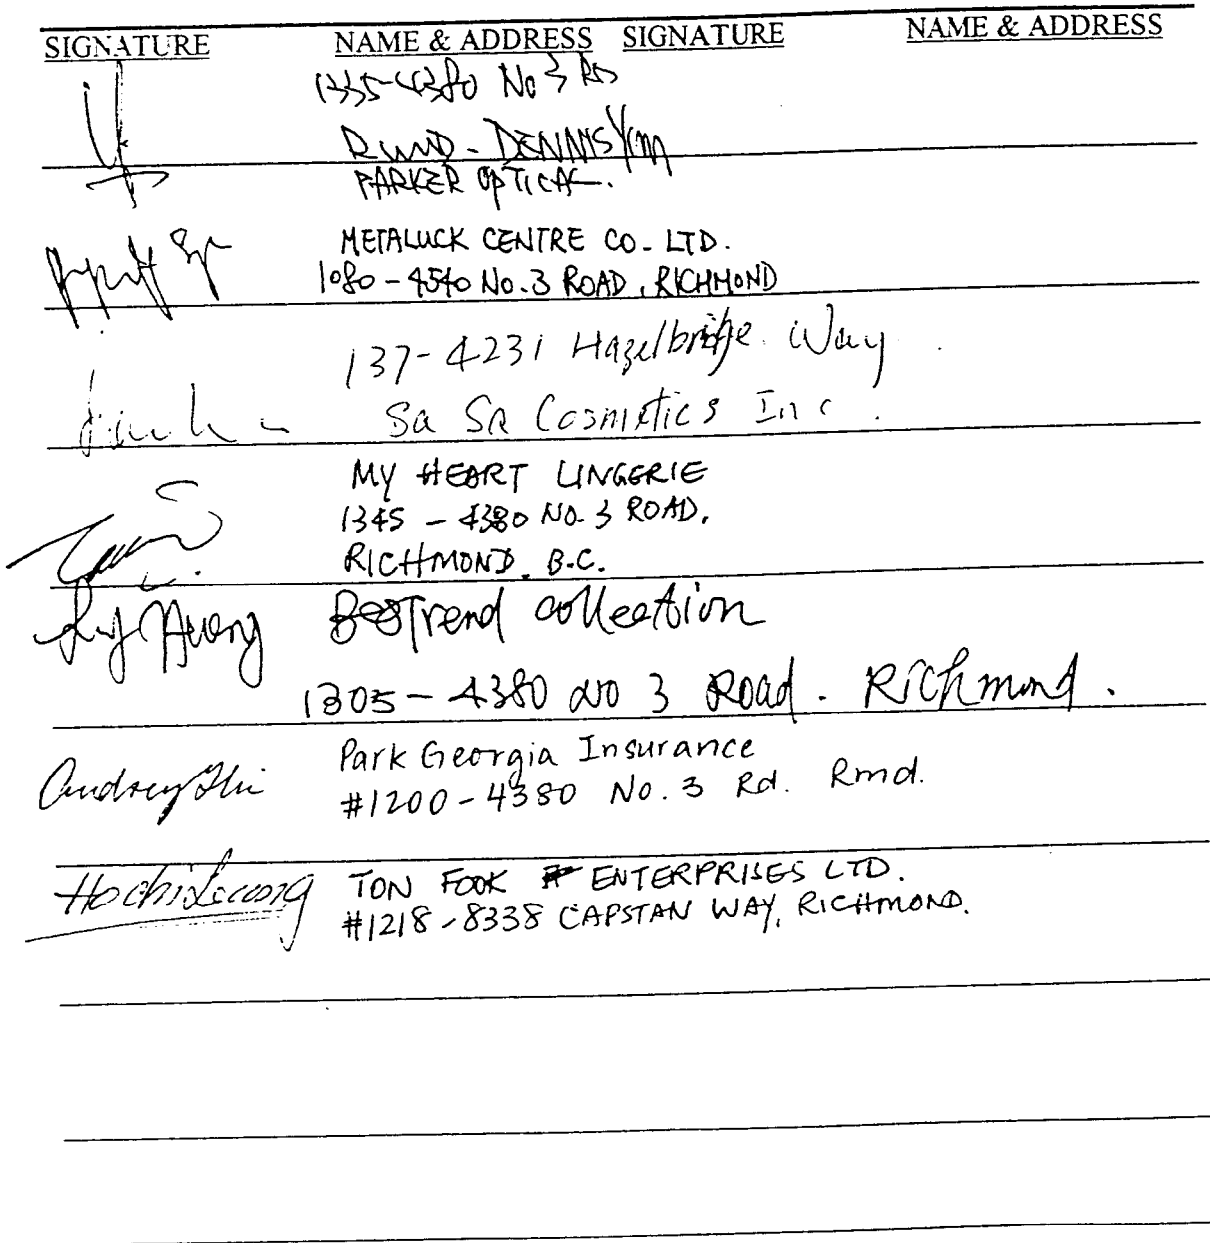 SIGNATURE NAME & ADDRESS SIGNATURE NAME & ADDRESS
1335-4380 No 3 RD
RMD - DENNIS Yim
PARKER OPTICAL.
METALUCK CENTRE CO. LTD.
1080 - 4540 No. 3 ROAD, RICHMOND
137-4231 Hazelbridge Way
Sa Sa Cosmetics Inc.
MY HEART LINGERIE
1345 - 4380 NO. 3 ROAD,
RICHMOND, B.C.
Huang BesTrend collection
1305 - 4380 NO 3 Road. Richmond.
Park Georgia Insurance
Audrey #1200-4380 No. 3 Rd. Rmd.
Hochi Leung TON FOOK ENTERPRISES LTD.
#1218-8338 CAPSTAN WAY, RICHMOND.